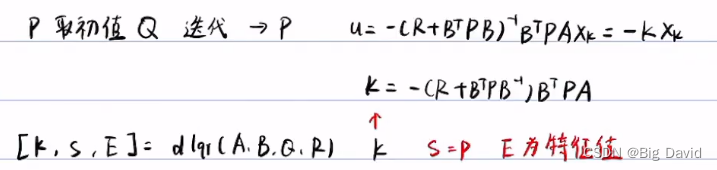 P 取初值 Q 迭代 → P u = -(R+BᵀPB)⁻¹BᵀPAXₖ = -KXₖ
K = -(R+BᵀPB⁻¹)BᵀPA
↑
[K, S, E] = dlqr(A.B.Q.R) K S=P E为特征值
CSDN @Big David